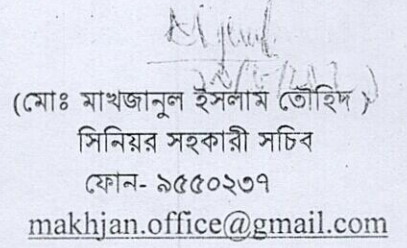 (মোঃ মাখজানুল ইসলাম তৌহিদ)
সিনিয়র সহকারী সচিব
ফোন- ৯৫৫০২৩৭
makhjan.office@gmail.com